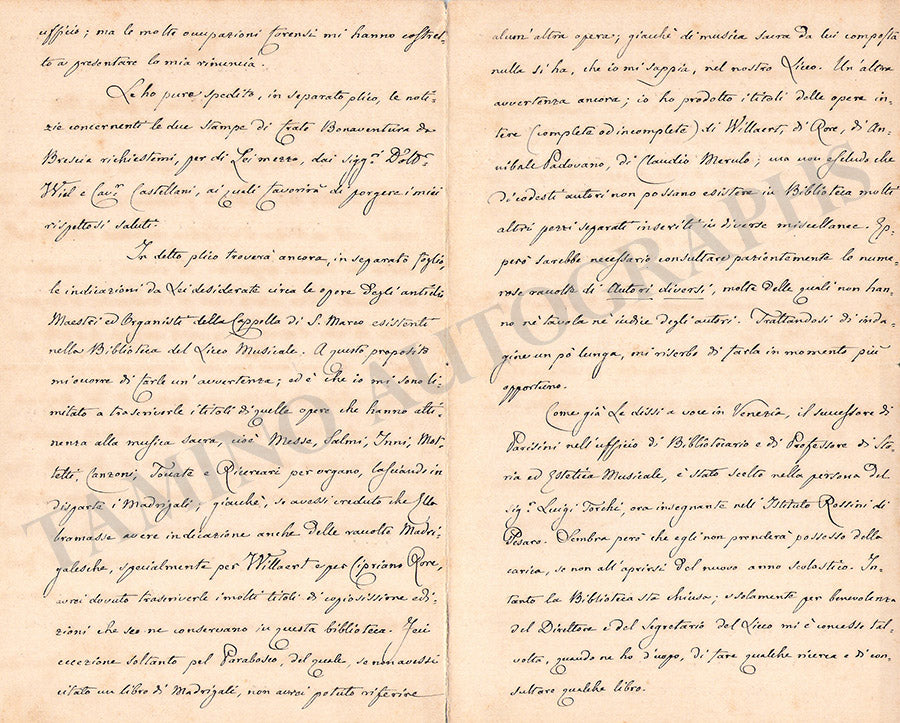 ufficio; ma le molte occupazioni forensi mi hanno costret-
to a presentare la mia rinuncia.
Le ho pure spedito, in separato plico, le noti-
zie concernenti le due stampe di frate Bonaventura da
Brescia richiestemi, per di Lei mezzo, dai Sigg.ri Dott.r
Wiel e Cav.r Castellani, ai quali favorirà di porgere i miei
rispettosi saluti.
In detto plico troverà ancora, in separato foglio,
le indicazioni da Lei desiderate circa le opere degli antichi
Maestri ed Organisti della Cappella di S. Marco esistenti
nella Biblioteca del Liceo Musicale. A questo proposito
mi occorre di farle un'avvertenza; ed è che io mi sono li-
mitato a trascriverle i titoli di quelle opere che hanno atti-
nenza alla musica sacra, cioè Messe, Salmi, Inni, Mot-
tetti, Canzoni, Toccate e Ricercari per organo, lasciando in
disparte i Madrigali; giacchè, se avessi creduto che Ella
bramasse avere indicazione anche delle raccolte Madri-
galesche, specialmente per Willaert e per Cipriano Rore,
avrei dovuto trascriverle i molti titoli di copiosissime edi-
zioni che se ne conservano in questa biblioteca. Feci
eccezione soltanto pel Parabosco, del quale, se non avessi
citato un libro di Madrigali, non avrei potuto riferire
alcun'altra opera; giacchè di musica sacra da lui composta
nulla si ha, che io mi sappia, nel nostro Liceo. Un'altra
avvertenza ancora; io ho prodotto i titoli delle opere in-
tere (complete od incomplete) di Willaert, di Rore, di An-
nibale Padovano, di Claudio Merulo; ma non escludo che
di codesti autori non possano esistere in Biblioteca molti
altri pezzi separati inseriti in diverse miscellanee. Ep-
però sarebbe necessario consultare pazientemente le nume-
rose raccolte di Autori diversi, molte delle quali non han-
no nè tavola nè indice degli autori. Trattandosi di inda-
gine un pò lunga, mi riserbo di farla in momento più
opportuno.
Come già Le dissi a voce in Venezia, il successore di
Parisini nell'ufficio di Bibliotecario e di Professore di Sto-
ria ed Estetica Musicale, è stato scelto nella persona del
Sig.r Luigi Torchi, ora insegnante nell'Istituto Rossini di
Pesaro. Sembra però che egli non prenderà possesso della
carica, se non all'aprirsi del nuovo anno scolastico. In-
tanto la Biblioteca sta chiusa; e solamente per benevolenza
del Direttore e del Segretario del Liceo mi è concesso tal-
volta, quando ne ho d'uopo, di fare qualche ricerca e di con-
sultare qualche libro.
TAMINO AUTOGRAPHS